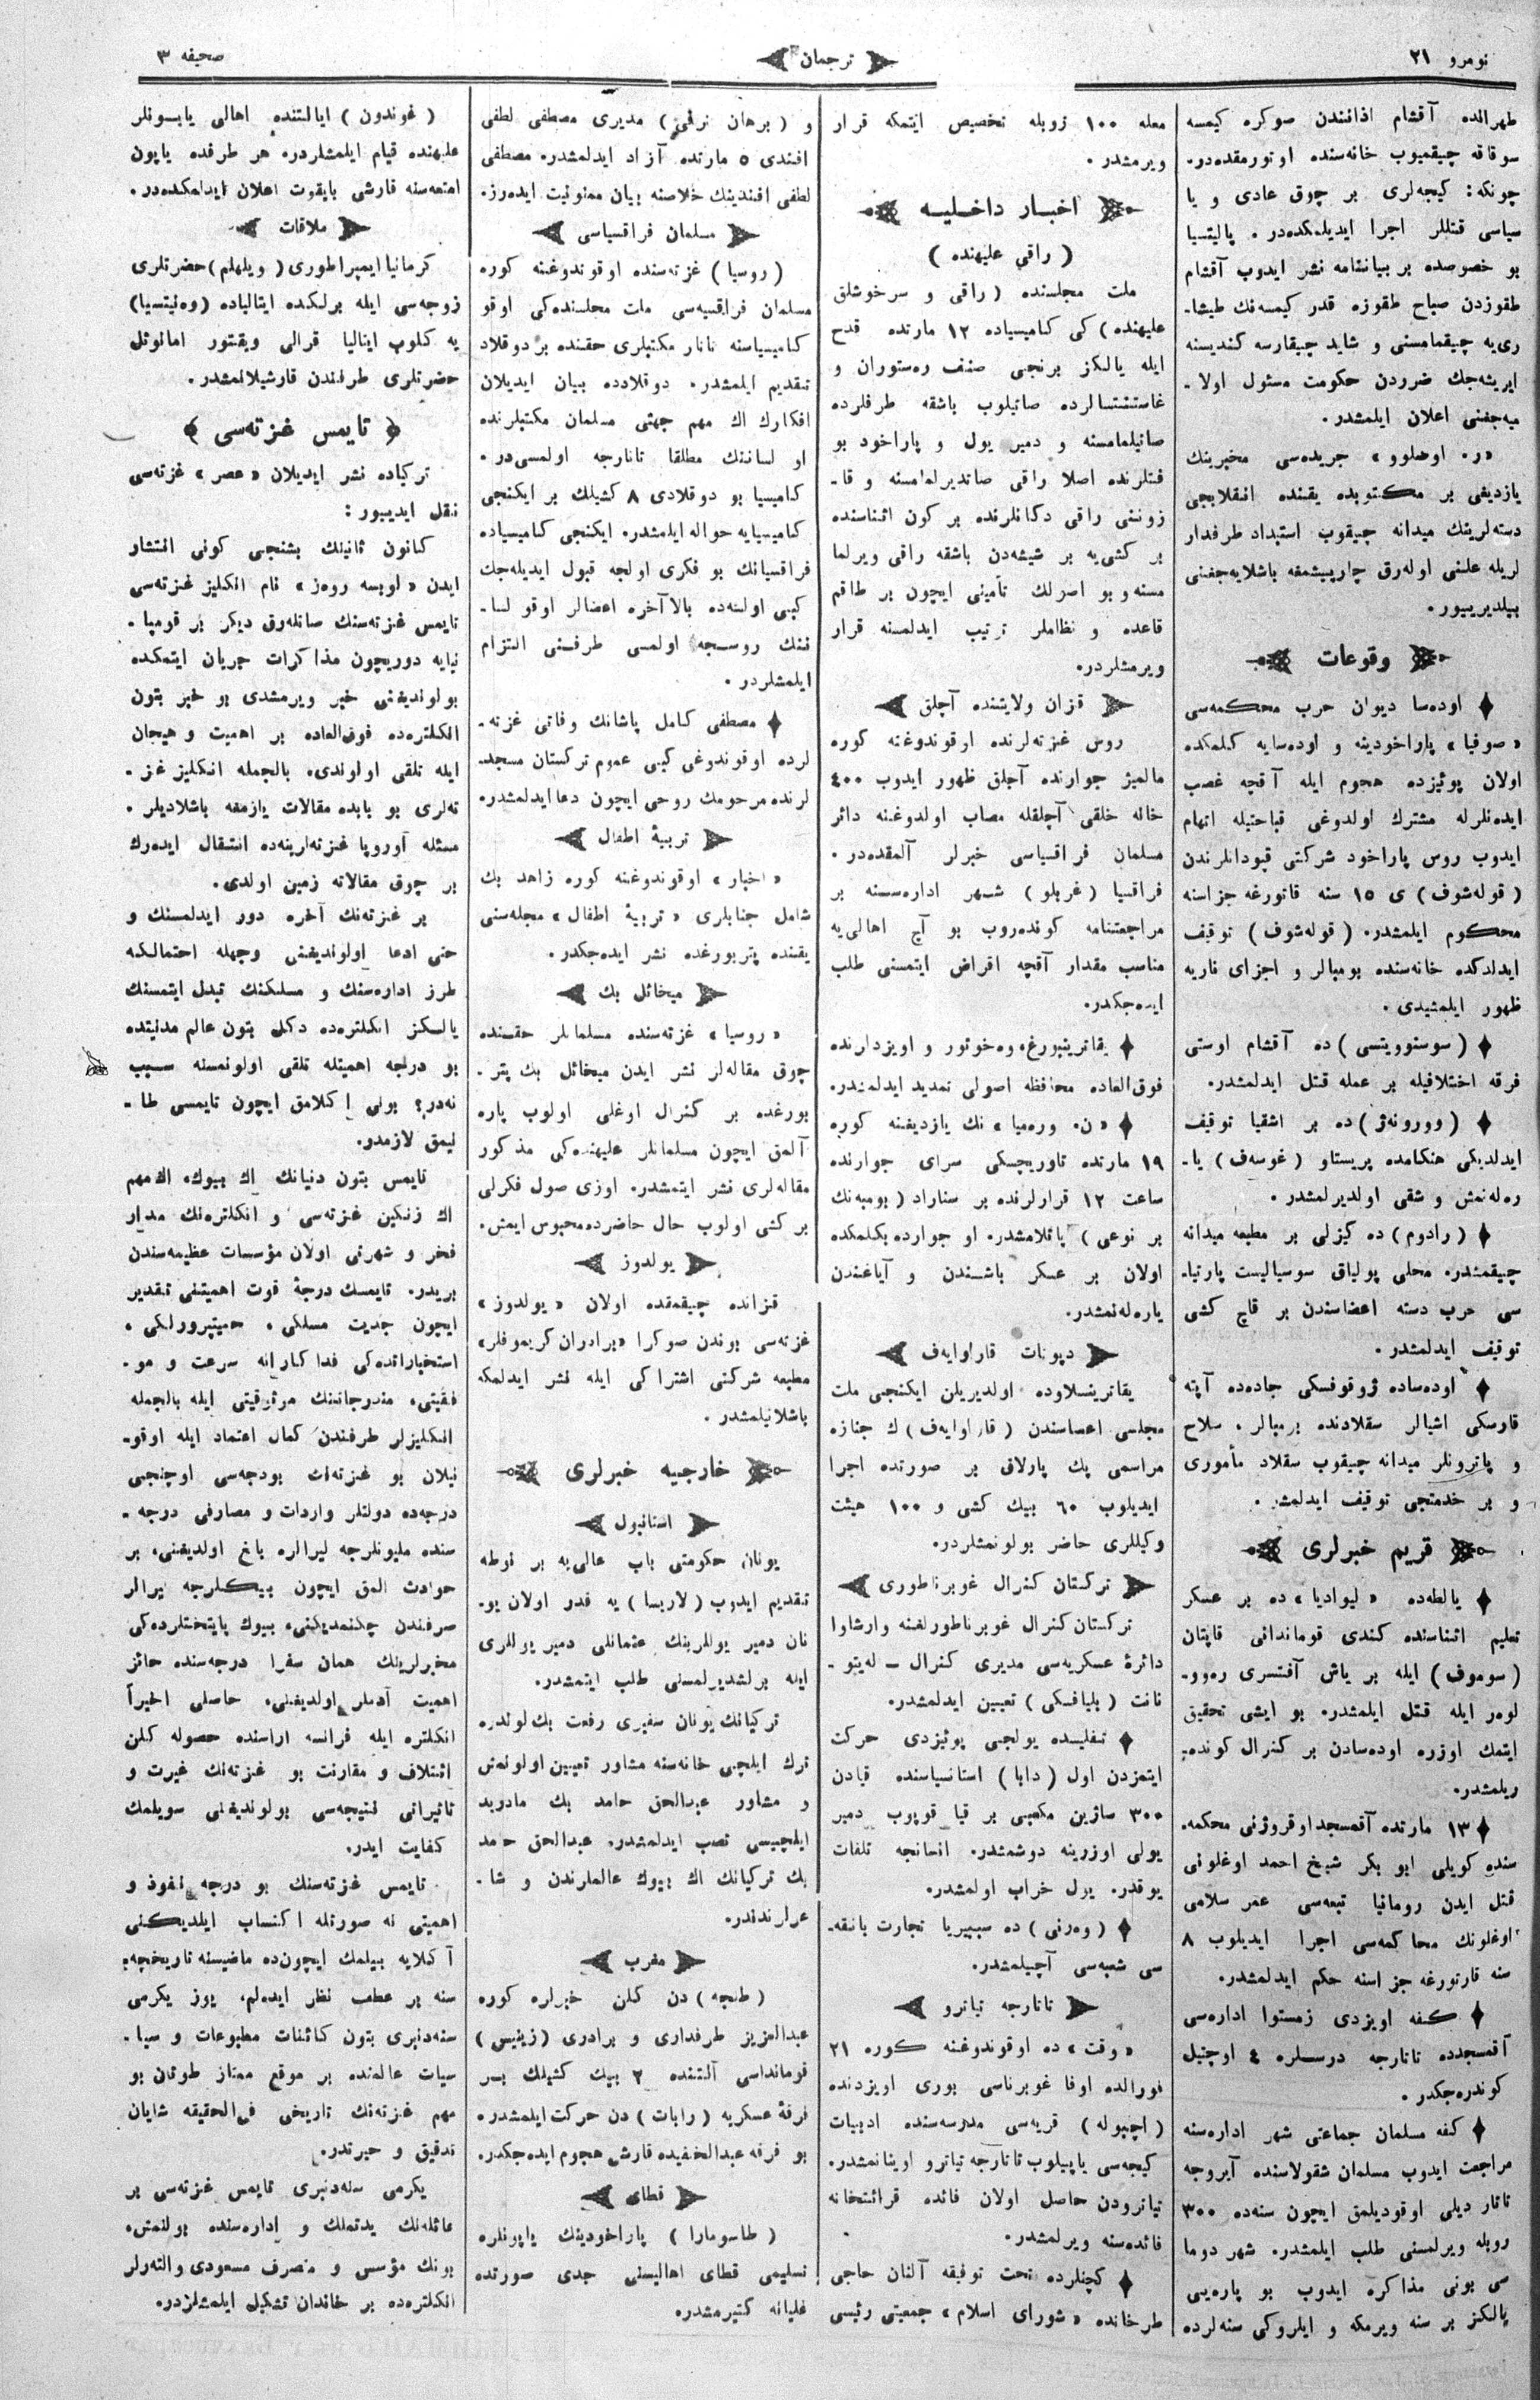 نومرو ٢١
ترجمان
صحيفه ٣
طهرالده آقشام اذانندن صوكره كيمسه
سوقاقه چيقميوب خانه‌سنده اوتورمقده‌در.
چونكه: كيجه‌لرى بر چوق عادى و يا
سياسى قتللر اجرا ايديلمكده‌در. پاليتسيا
بو خصوصده بر بياننامه نشر ايدوب آقشام
طقوزدن صباح طقوزه قدر كيمسه‌نك طيشا-
رى‌يه چيقمامسنى و شايد چيقارسه كنديسنه
ايريشه‌جك ضرردن حكومت مسئول اولا-
ميه‌جغنى اعلان ايلمشدر.
«ر. اوصلوو» جريده‌سى مخبرينك
يازديغى بر مكتوبده يقنده انقلابجى
دسته‌لرينك ميدانه چيقوب استبداد طرفدار
لريله علنى اوله‌رق چارپيشمغه باشلايه‌جغنى
بيلديرييور.
وقوعات
اوده‌سا ديوان حرب محكمه‌سى
«صوفيا» پاراخودينه و اوده‌سايه كلمكده
اولان پوئيزده هجوم ايله آقچه غصب
ايده‌نلرله مشترك اولدوغى قباحتيله اتهام
ايدوب روس پاراخود شركتى قپودانلرندن
(قوله‌شوف) ى ١٥ سنه قاتورغه جزاسنه
محكوم ايلمشدر. (قوله‌شوف) توقيف
ايدلدكده خانه‌سنده بومبالر و اجزاى ناريه
ظهور ايلمشيدى.
(سوسنوويتسى) ده آقشام اوستى
فرقه اختلافيله بر عمله قتل ايدلمشدر.
(وورونه‌ژ) ده بر اشقيا توقيف
ايدلديكى هنكامده پريستاو (غوسه‌ف) يا-
ره‌له‌نمش و شقى اولديرلمشدر.
(رادوم) ده كيزلى بر مطبعه ميدانه
چيقمشدر. محلى پولياق سوسياليست پارتيا-
سى حرب دسته اعضاسندن بر قاچ كشى
توقيف ايدلمشدر.
اوده‌ساده ژوقوفسكى جاده‌ده آپته
قارسكى اشيالر سقلادنده بومبالر، سلاح
و پاترونلر ميدانه چيقوب سقلاد مأمورى
و بر خدمتجى توقيف ايدلمشدر.
قريم خبرلرى
يالطه‌ده «ليواديا» ده بر عسكر
تعليم اثناسنده كندى قوماندانى قاپتان
(سوموف) ايله بر ياش آفتسرى ره‌وو-
لوه‌ر ايله قتل ايلمشدر. بو ايشى تحقيق
ايتمك اوزره اوده‌سادن بر كنرال كونده-
ريلمشدر.
١٣ مارتده آقمسجد اوقروژنى محكمه-
سنده كويلى ابو بكر شيخ احمد اوغلونى
قتل ايدن رومانيا تبعه‌سى عمر سلامى
اوغلونك محاكمه‌سى اجرا ايديلوب ٨
سنه قاتورغه جزاسنه حكم ايدلمشدر.
كفه اويزدى زمستوا اداره‌سى
آقمسجدده تاتارجه درسلره ٤ اوچتيل
كوندره‌جكدر.
كفه مسلمان جماعتى شهر اداره‌سنه
مراجعت ايدوب مسلمان شقولاسنده آيروجه
تاتار ديلى اوقوديلمق ايچون سنه‌ده ٣٠٠
روبله ويرلمسنى طلب ايلمشدر. شهر دوما
سى بونى مذاكره ايدوب بو پاره‌يى
يالكز بر سنه ويرمكه و ايلروكى سنه‌لرده
معلمه ١٠٠ روبله تخصيص ايتمكه قرار
ويرمشدر.
اخبار داخليه
(راقى عليهنده)
ملت مجلسنده (راقى و سرخوشلق
عليهنده) كى كاميسياده ١٢ مارتده قدح
ايله يالكز برنجى صنف ره‌ستوران و
غاستنتسالرده صاتيلوب باشقه طرفلرده
صاتيلمامسنه و دمير يول و پاراخود بو
فتلرنده اصلا راقى صاتديرلمامسنه و قا-
زوننى راقى دكانلرنده بر كون اثناسنده
بر كشى‌يه بر شيشه‌دن باشقه راقى ويرلما
مسنه و بو اصولك تأمينى ايچون بر طاقم
قاعده و نظاملر ترتيب ايدلمسنه قرار
ويرمشلردر.
قزان ولايتنده آچلق
روس غزته‌لرنده اوقوندوغنه كوره
مالميژ جوارنده آچلق ظهور ايدوب ٤٠٠
خانه خلقى آچلقله مصاب اولدوغنه دائر
مسلمان فراقسياسى خبرلر آلمقده‌در.
فراقسيا (غربلو) شهر اداره‌سنه بر
مراجعتنامه كونده‌روب بو آچ اهالى‌يه
مناسب مقدار آقچه اقراض ايتمسنى طلب
ايده‌جكدر.
يقاترينبورغ، وه‌خوتور و اويزدارنده
فوق‌العاده محافظه اصولى تمديد ايدلمشدر.
«ن. وره‌ميا» نك يازديغنه كوره
١٩ مارتده تاوريچسكى سراى جوارنده
ساعت ١٢ قرارلرنده بر سناراد (بومبه‌نك
بر نوعى) پاتلامشدر. او جوارده بكلمكده
اولان بر عسكر باشندن و آياغندن
ياره‌له‌نمشدر.
دپوتات قاراوايه‌ف
يقاترينسلاوده اولديريلن ايكنجى ملت
مجلسى اعضاسندن (قاراوايه‌ف) ك جنازه
مراسمى پك پارلاق بر صورتده اجرا
ايديلوب ٦٠ بيك كشى و ١٠٠ هيئت
وكيللرى حاضر بولونمشلردر.
تركستان كنرال غوبرناطورى
تركستان كنرال غوبرناطورلغنه وارشاوا
دائرۀ عسكريه‌سى مديرى كنرال — له‌يتو-
نانت (بليافسكى) تعيين ايدلمشدر.
تفليسده يولجى پوئيزدى حركت
ايتمزدن اول (دابا) استانسياسنده قيادن
٣٠٠ ساژين مكعبى بر قيا قوپوب دمير
يولى اوزرينه دوشمشدر. انسانجه تلفات
يوقدر. يول خراب اولمشدر.
(وه‌رنى) ده سيبيريا تجارت بانقه-
سى شعبه‌سى آچيلمشدر.
تاتارجه تياترو
«وقت» ده اوقوندوغنه كوره ٢١
فورالده اوفا غوبرناسى بورى اويزدنده
(اچپوله) قريه‌سى مدرسه‌سنده ادبيات
كيجه‌سى ياپيلوب تاتارجه تياترو اوينانمشدر.
تياترودن حاصل اولان فائده قرائتخانه
فائده‌سنه ويرلمشدر.
كچنلرده تحت توقيفه آلنان حاجى
طرخانده «شوراى اسلام» جمعيتى رئيسى
و (برهان ترقى) مديرى مصطفى لطفى
افندى ٥ مارتده آزاد ايدلمشدر. مصطفى
لطفى افندينك خلاصنه بيان ممنونيت ايده‌رز.
مسلمان فراقسياسى
(روسيا) غزته‌سنده اوقوندوغنه كوره
مسلمان فراقسيه‌سى ملت مجلسنده‌كى اوقو
كاميسياسنه تاتار مكتبلرى حقنده بر دوقلاد
تقديم ايلمشدر. دوقلادده بيان ايديلان
افكارك اك مهم جهتى مسلمان مكتبلرنده
او لساننك مطلقا تاتارجه اولمسى‌در.
كاميسيا بو دوقلادى ٨ كشيلك بر ايكنجى
كاميسيايه حواله ايلمشدر. ايكنجى كاميسياده
فراقسيانك بو فكرى اولجه قبول ايديله‌جك
كبى اولسه‌ده بالاآخره اعضالر اوقو لسا-
ننك روسجه اولمسى طرفنى التزام
ايلمشلردر.
مصطفى كامل پاشانك وفاتى غزته-
لرده اوقوندوغى كبى عموم تركستان مسجد-
لرنده مرحومك روحى ايچون دعا ايدلمشدر.
تربيۀ اطفال
«اخبار» اوقوندوغنه كوره زاهد بك
شامل جنابلرى «تربيۀ اطفال» مجله‌سنى
يقنده پتربورغده نشر ايده‌جكدر.
ميخائل بك
«روسيا» غزته‌سنده مسلمانلر حقنده
چوق مقاله‌لر نشر ايدن ميخائل بك پتر-
بورغده بر كنرال اوغلى اولوب پاره
آلمق ايچون مسلمانلر عليهنده‌كى مذكور
مقاله‌لرى نشر ايتمشدر. اوزى صول فكرلى
بر كشى اولوب حال حاضرده محبوس ايمش.
يولدوز
قزانده چيقمقده اولان «يولدوز»
غزته‌سى بوندن صوكرا «برادران كريموفلر»
مطبعه شركتى اشتراكى ايله نشر ايدلمكه
باشلانيلمشدر.
خارجيه خبرلرى
استانبول
يونان حكومتى باب عالى‌يه بر نوطه
تقديم ايدوب (لاريسا) يه قدر اولان يو-
نان دمير يوللرينك عثمانلى دمير يوللرى
ايله برلشديرلمسنى طلب ايتمشدر.
تركيانك يونان سفيرى رفعت بك لوندره
ترك ايلچى خانه‌سنه مشاور تعيين اولونمش
و مشاور عبدالحق حامد بك مادريد
ايلچيسى نصب ايدلمشدر. عبدالحق حامد
بك تركيانك اك بيوك عالملرندن و شا-
عرلرندندر.
مغرب
(طنجه) دن كلن خبرلره كوره
عبدالعزيز طرفدارى و برادرى (زينيس)
قومانداسى آلتنده ٢ بيك كشيلك بر
فرقۀ عسكريه (رابات) دن حركت ايلمشدر.
بو فرقه عبدالحفيده قارشى هجوم ايده‌جكدر.
قطاى
(طاسومارا) پاراخودينك ياپونلره
تسليمى قطاى اهاليسنى جدى صورتده
غليانه كتيرمشدر.
(غوندون) ايالتنده اهالى يابونلر
عليهنده قيام ايلمشلردر. هر طرفده ياپون
امتعه‌سنه قارشى بايقوت اعلان ايدلمكده‌در.
ملاقات
كرمانيا ايمپراطورى (ويلهلم) حضرتلرى
زوجه‌سى ايله برلكده ايتالياده (وه‌نيتسيا)
يه كلوب ايتاليا قرالى ويقتور امانوئل
حضرتلرى طرفندن قارشيلانمشدر.
﴿ تايمس غزته‌سى ﴾
تركياده نشر ايديلان «عصر» غزته‌سى
نقل ايدييور:
كانون ثانينك بشنجى كونى انتشار
ايدن «اوبسه روه‌ز» نام انكليز غزته‌سى
تايمس غزته‌سنك صاتله‌رق ديكر بر قومپا-
نيايه دوريچون مذاكرات جريان ايتمكده
بولونديغنى خبر ويرمشدى بو خبر بتون
انكلتره‌ده فوق‌العاده بر اهميت و هيجان
ايله تلقى اولوندى. بالجمله انكليز غز-
ته‌لرى بو بابده مقالات يازمغه باشلاديلر.
مسئله آوروپا غزته‌لرينه‌ده انتقال ايده‌رك
بر چوق مقالاته زمين اولدى.
بر غزته‌نك آخره دور ايدلمسنك و
حتى ادعا اولونديغنى وجهله احتمالكه
طرز اداره‌سنك و مسلكنك تبدل ايتمسنك
يالكز انكلتره‌ده دكل بتون عالم مدنيتده
بو درجه اهميتله تلقى اولونمسنه سبب
نه‌در؟ بونى اكلامق ايچون تايمسى طا-
نيمق لازمدر.
تايمس بتون دنيانك اك بيوك، اك مهم
اك زنكين غزته‌سى و انكلتره‌نك مدار
فخر و شهرتى اولان مؤسسات عظيمه‌سندن
بريدر. تايمسك درجۀ قوت اهميتنى تقدير
ايچون جديت مسلكى، حميتپرورلكى،
استخباراتده‌كى فداكارانه سرعت و مو-
فقيتى، مندرجاتنك موثوقيتى ايله بالجمله
انكليزلر طرفندن كمال اعتماد ايله اوقو-
نيلان بو غزته‌نك بودجه‌سى اوچنجى
درجه‌ده دولتلر واردات و مصارفى درجه-
سنده مليونلرجه ليرالره بالغ اولديغنى، بر
حوادث المق ايچون بيكلرجه ليرالر
صرفندن چكنمديكنى، بيوك پايتختلرده‌كى
مخبرلرينك همان سفرا درجه‌سنده حائز
اهميت آدملر اولديغنى، حاصلى اخيراً
انكلتره ايله فرانسه اراسنده حصوله كلن
ائتلاف و مقارنت بو غزته‌نك غيرت و
تاثيراتى نتيجه‌سى بولونديغنى سويلمك
كفايت ايدر.
تايمس غزته‌سنك بو درجه نفوذ و
اهميتى نه صورتله اكتساب ايلديكنى
آكلايه بيلمك ايچون‌ده ماضيسنه تاريخچه-
سنه بر عطف نظر ايده‌لم. يوز يكرمى
سنه‌دنبرى بتون كائنات مطبوعات و سيا-
سيات عالمنده بر موقع ممتاز طوتان بو
مهم غزته‌نك تاريخى فى‌الحقيقه شايان
تدقيق و حيرتدر.
يكرمى سنه‌دنبرى تايمس غزته‌سى بر
عائله‌نك يدتملك و اداره‌سنده بولنمش،
بونك مؤسس و متصرف مسعودى والته‌رلر
انكلتره‌ده بر خاندان تشكيل ايلمشلردر.